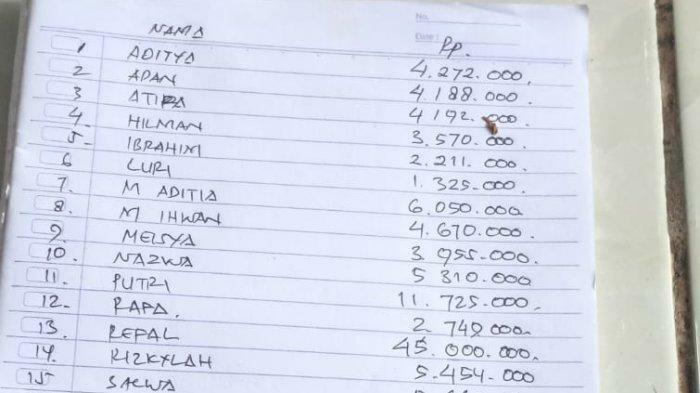 No.
Date :
NAMA Rp.
1 ADITYA 4.272.000,
2 ADAN 4.188.000
3 ATIPA 4.192.000
4. HILMAN 3.570.000
5. IBRAHIM 2.211.000
6 LURI 1.325-000.
7. M ADITIA 6.050.000
8. M IHWAN 4.670.000
9. MEISYA 3.955-000.
10. NAZWA 5 310.000
11. PUTRI 11.725.000.
12. RAPA. 2.749.000.
13. REPAL 45.000.000.
14. RIZKYLAH 5.454.000
15 SALWA